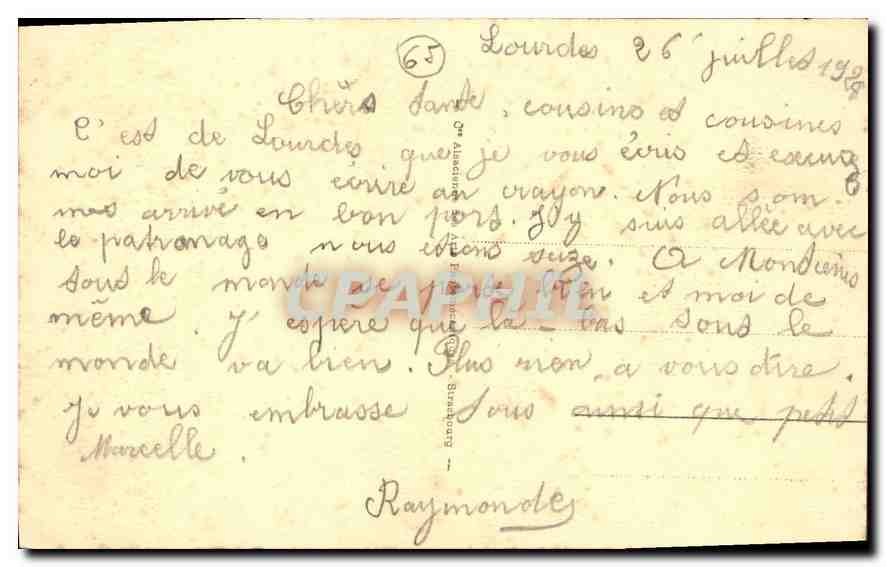 65
Lourdes 26 juillet 19
Chère tante, cousins et cousines
C'est de Lourdes que je vous écris et excusez
moi de vous écrire au crayon. Nous som-
mes arrivé en bon port. J'y suis allée avec
le patronage nous étions seize. A
tous le monde se porte bien et moi de
même. J'espère que la-bas tous le
monde va bien. Plus rien a vous dire.
Je vous embrasse tous ainsi que petit
Marcelle.
Raymonde
Cie Alsacienne des Arts Photomécaniques, Strasbourg
CPAPHIL